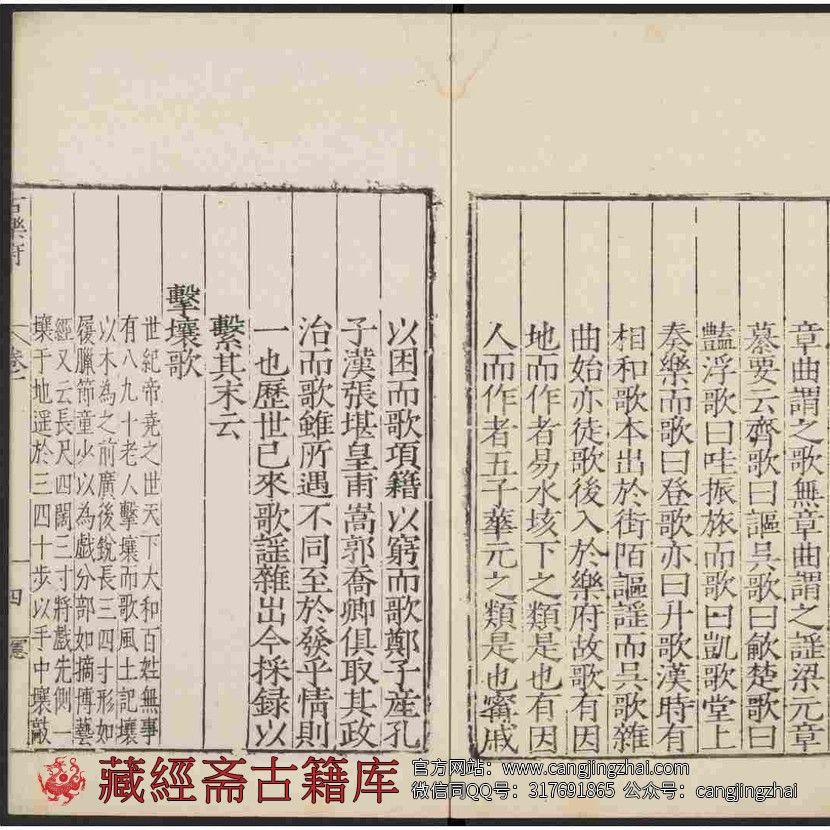 章曲謂之歌無章曲謂之謡梁元章
纂要云齊歌曰謳吳歌曰歈楚歌曰
豔浮歌曰哇振旅而歌曰凱歌堂上
奏樂而歌曰登歌亦曰升歌漢時有
相和歌本出於街陌謳謡而吳歌雜
曲始亦徒歌後入於樂府故歌有因
地而作者易水垓下之類是也有因
人而作者五子華元之類是也甯戚
以困而歌項籍以窮而歌鄭子產孔
子漢張堪皇甫嵩郭喬卿俱取其政
治而歌雖所遇不同至於發乎情則
一也歷世已來歌謡雜出今採録以
繫其末云
擊壤歌
世紀帝堯之世天下大和百姓無事
有八九十老人擊壤而歌風土記壤
以木為之前廣後銳長三四寸形如
履臘節童少以為戲分部如擿博藝
經又云長尺四闊三寸將戲先側一
壤于地遥於三四十步以手中壤敲
古樂府
卷一
四
憲
藏經斋古籍库
官方网站：www.cangjingzhai.com
微信同QQ号：317691865 公众号：cangjingzhai